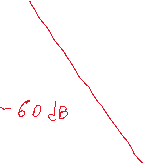 -60 dB